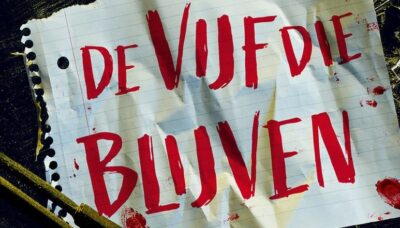 DE VIJF DIE
BLIJVEN